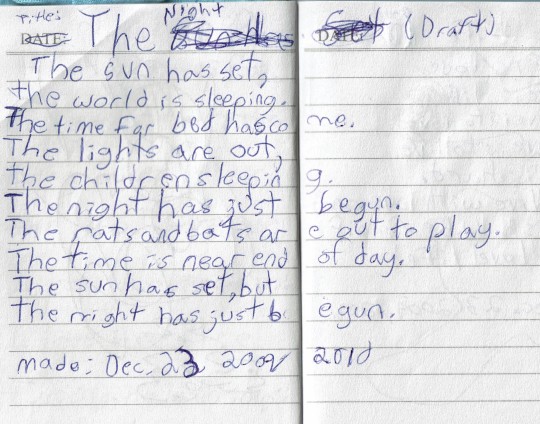 Title:
DATE: The Night (Draft)
The sun has set,
the world is sleeping.
The time for bed has come.
The lights are out,
the children sleeping.
The night has just begun.
The rats and bats are out to play.
The time is near end of day.
The sun has set, but
the night has just begun.
made: Dec. 23 2009 2010